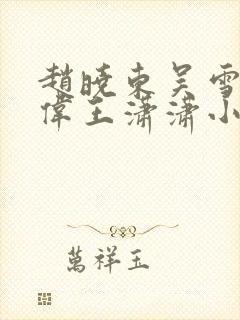 趙曉東吳雪
偉王瀟瀟小
萬祥玉